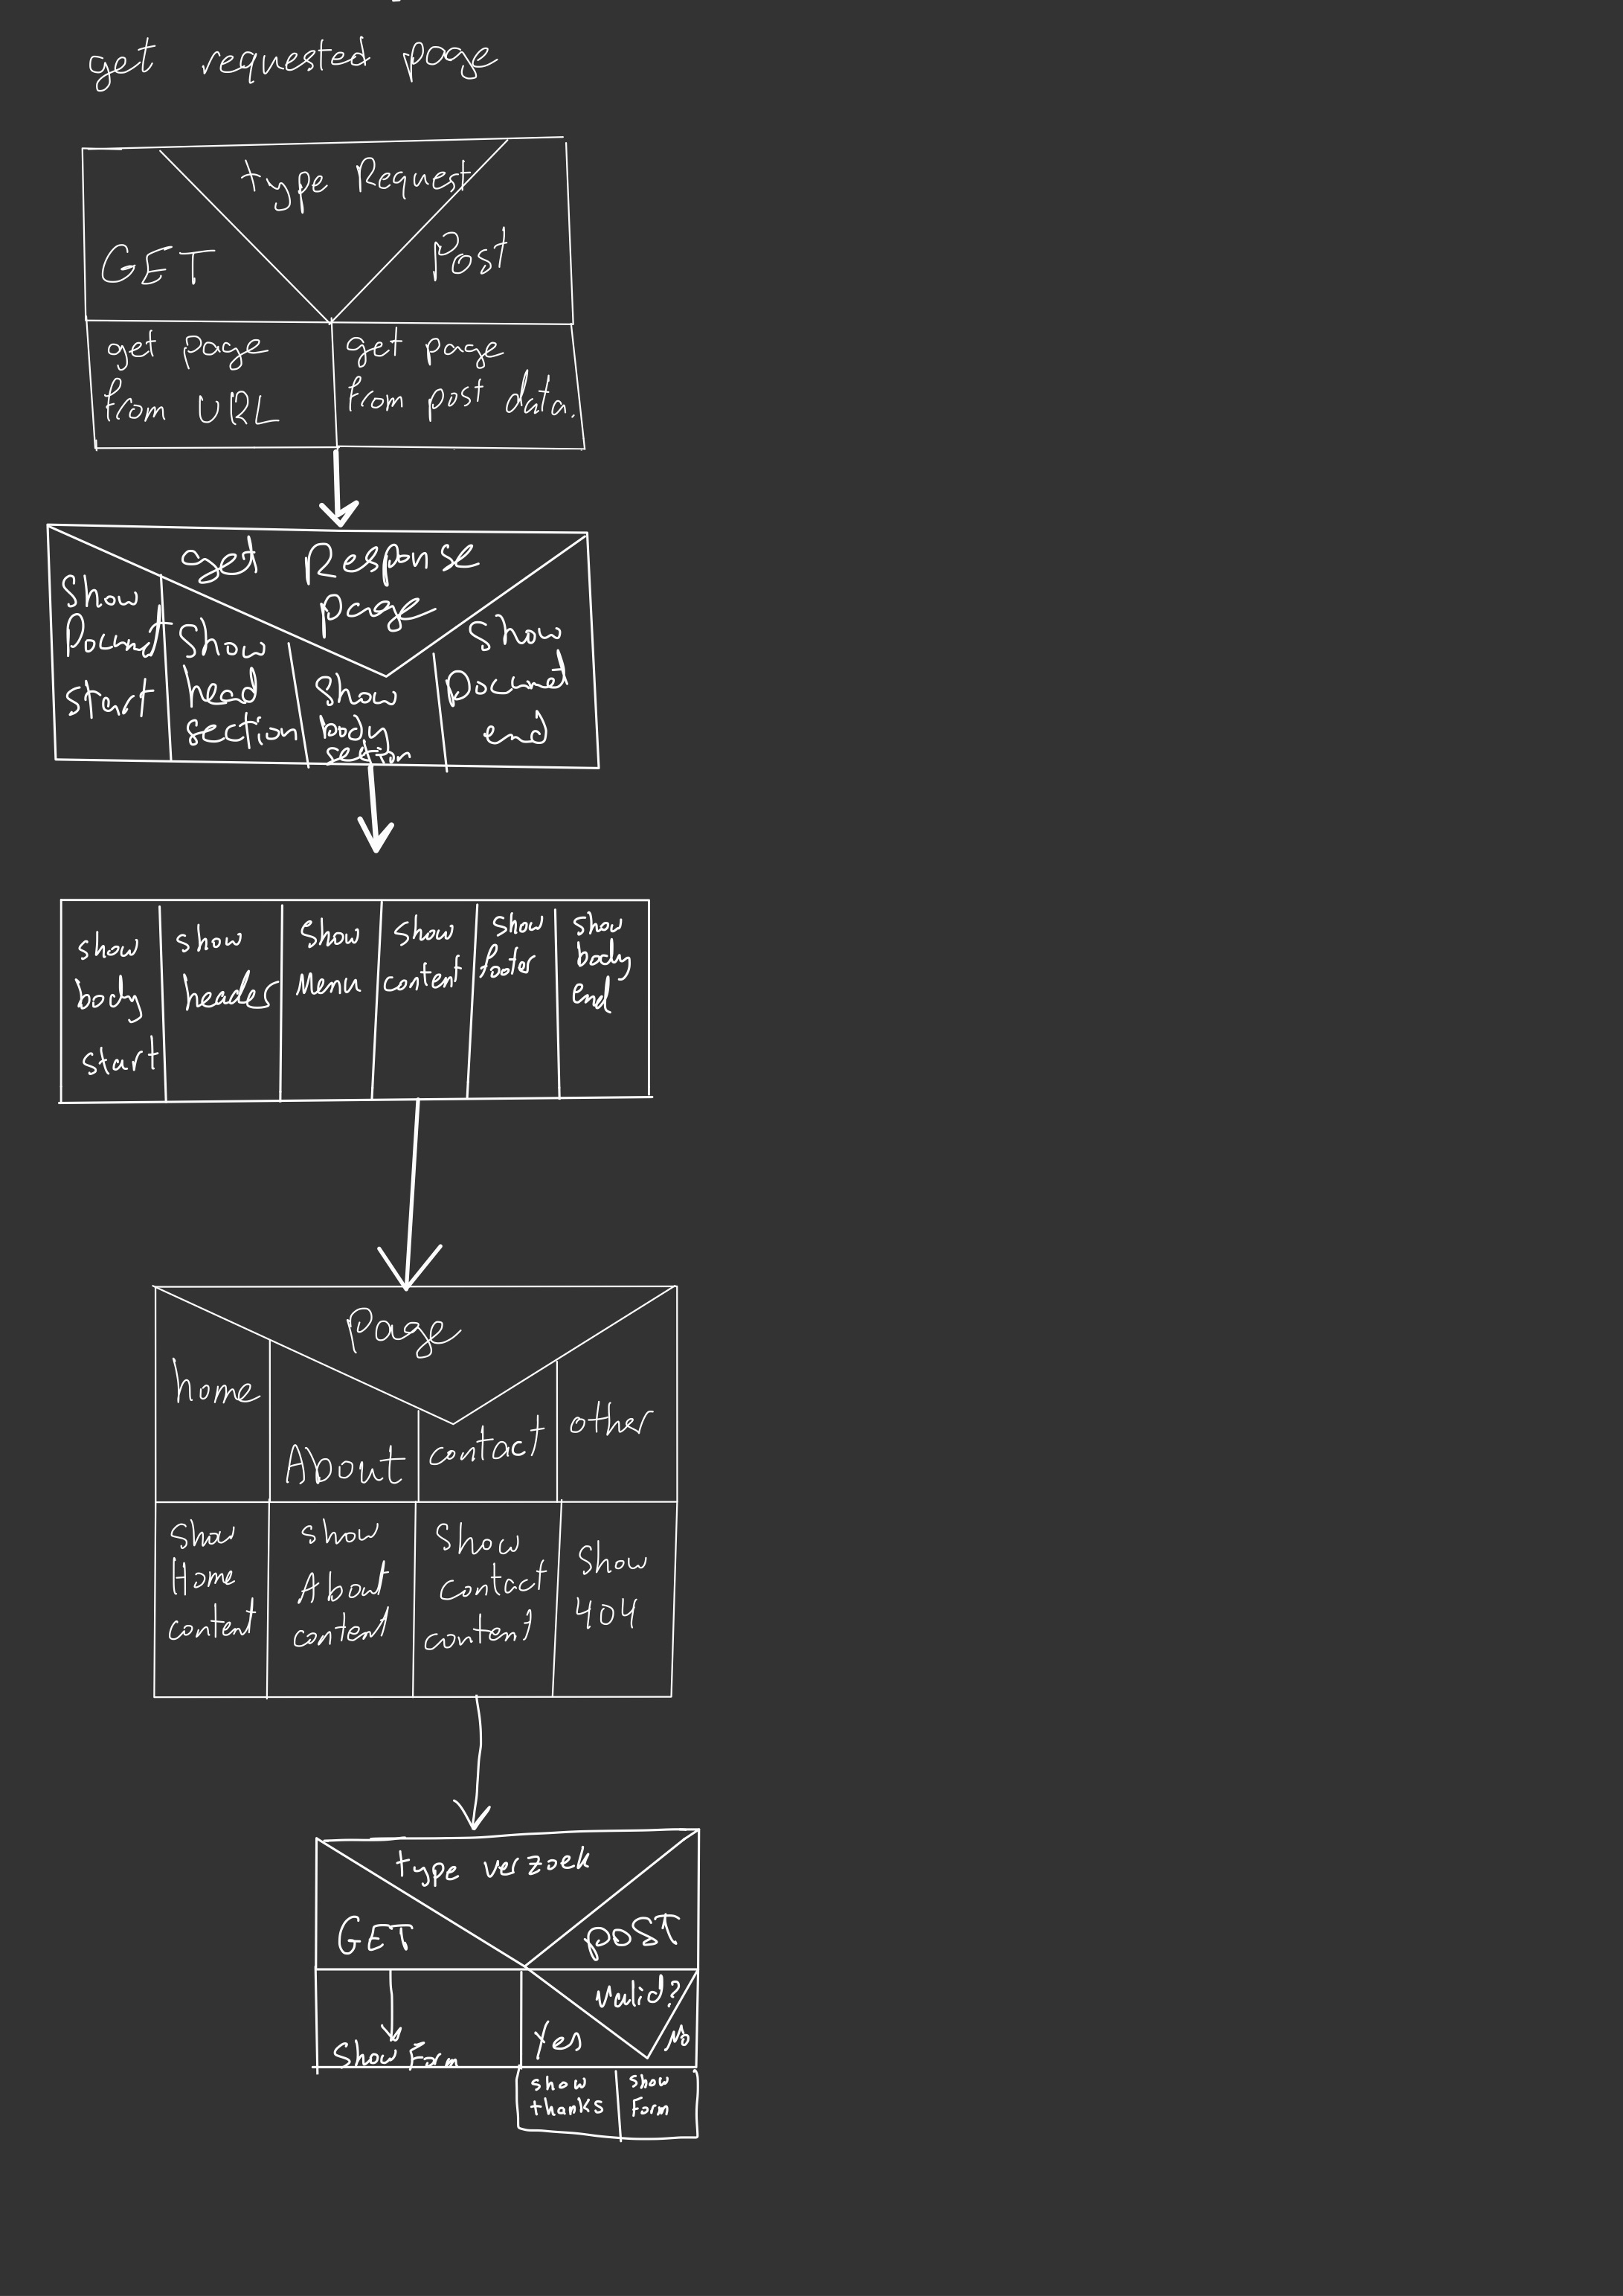 get requested page
type Request
GET
Post
get page
from URL
get page
from post data.
Set Response
page
Show
Document
start
Show
head
section
Show
body
section
Show
Document
end
show
body
start
show
header
show
Menu
show
content
show
footer
show
body
end
Page
home
About
contact
other
show
Home
content
show
About
content
show
contact
content
show
404
type verzoek
GET
POST
Valid?
Yes
No
Show Form
show
thanks
show
Form